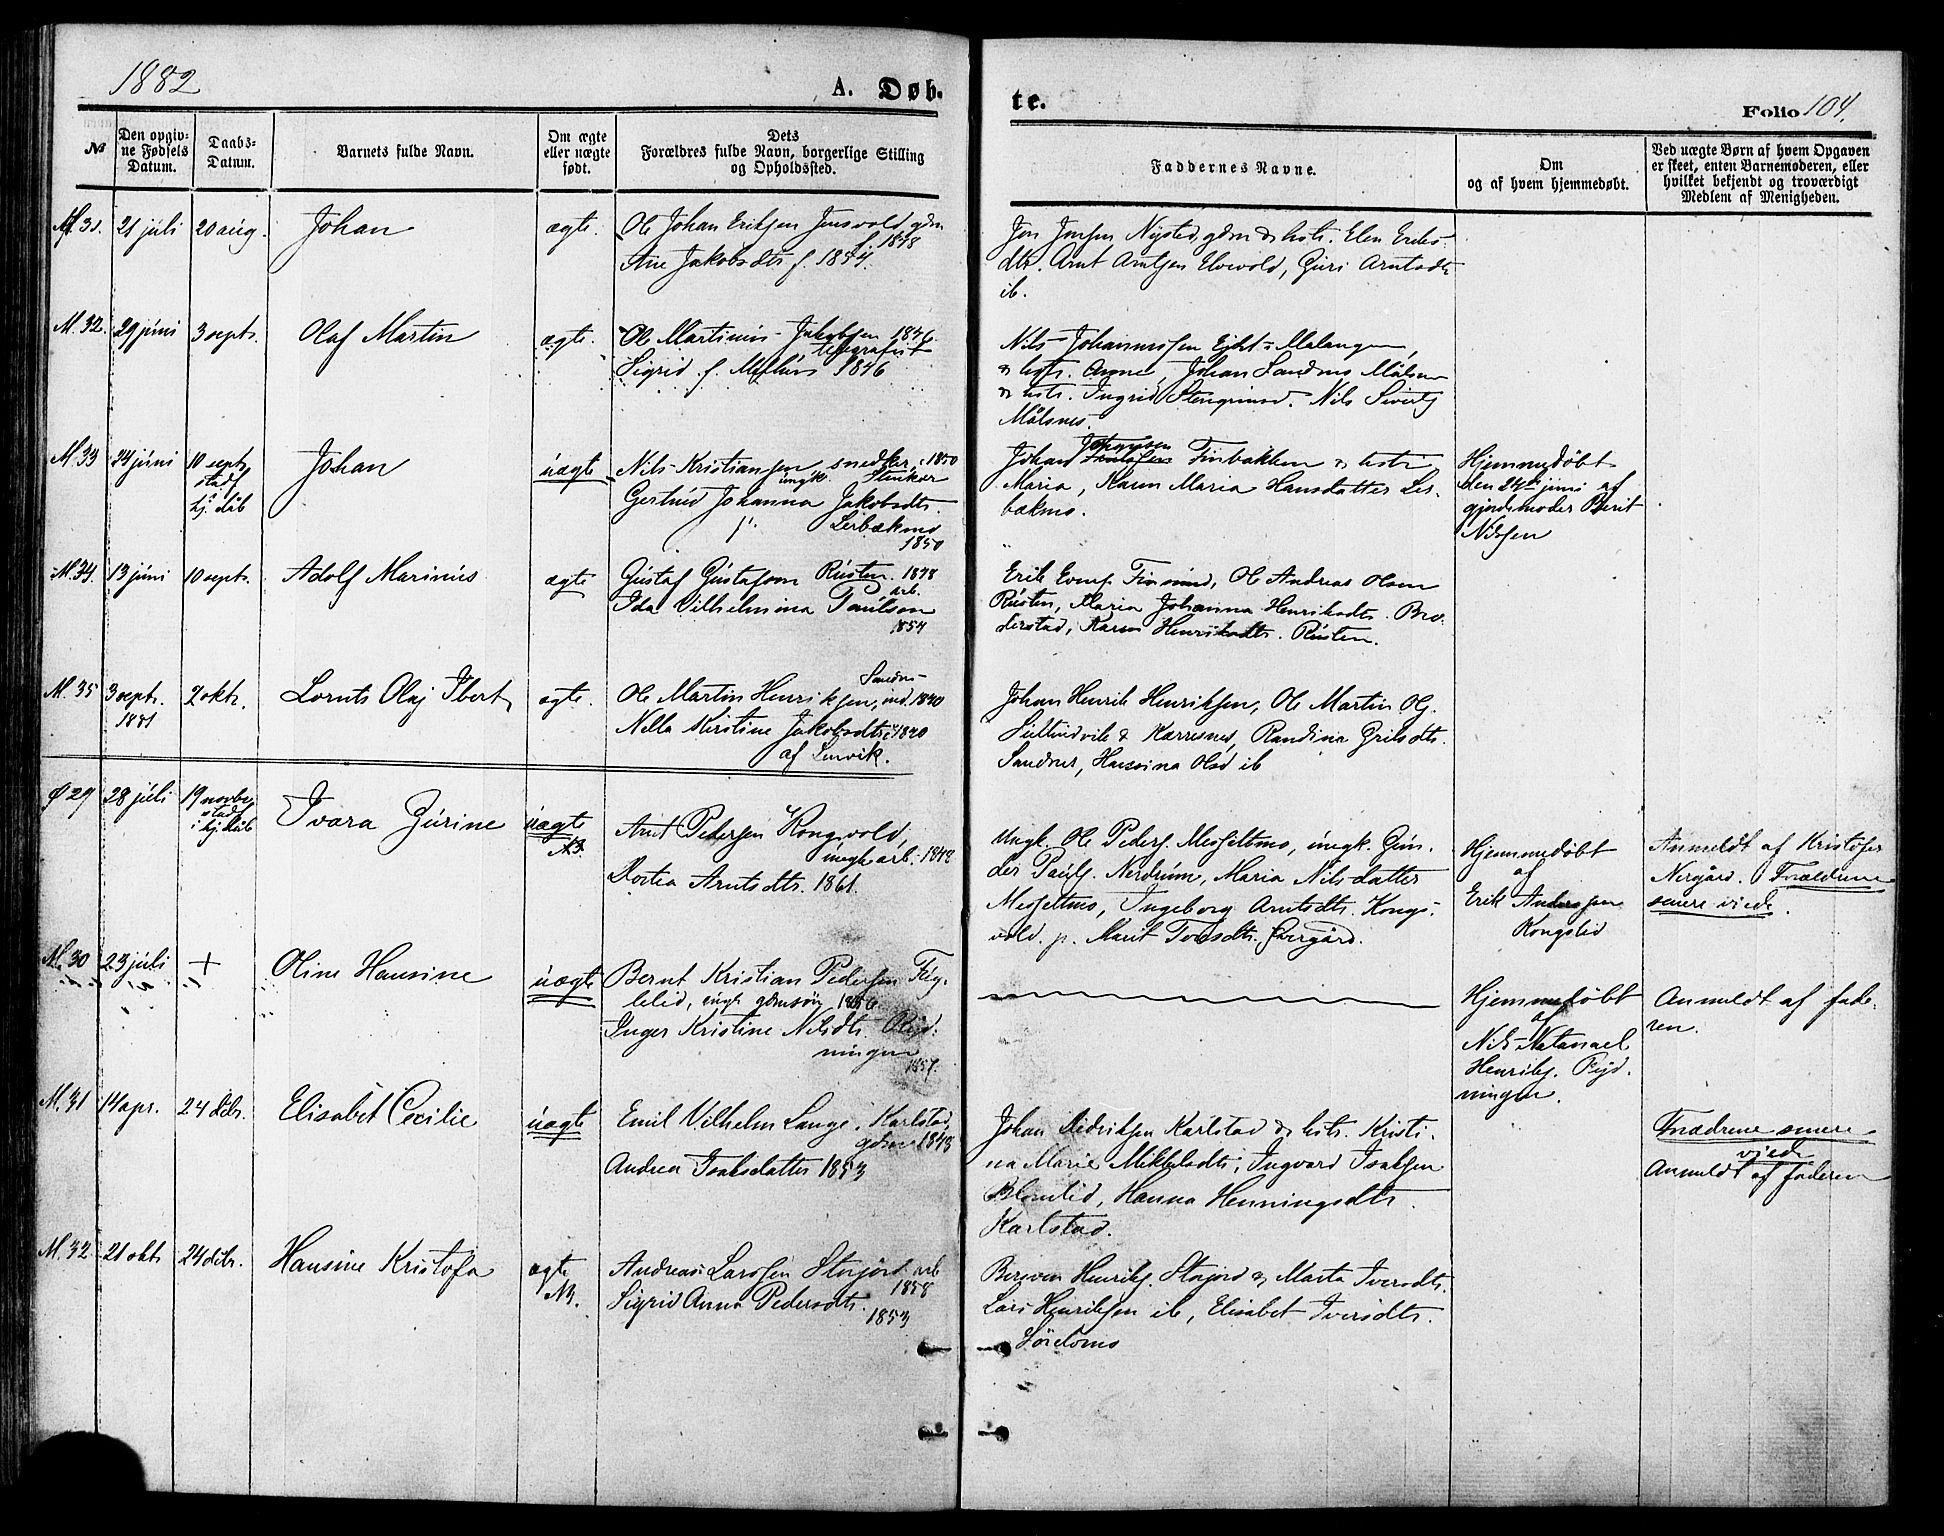 1882
A. Døb-
te.
Folio 104.
№
Den opgiv-
ne Fødsels
Datum.
Daabs-
Datum.
Barnets fulde Navn.
Om ægte
eller uægte
født.
Dets
Forældres fulde Navn, borgerlige Stilling
og Opholdssted.
Faddernes Navne.
Om
og af hvem hjemmedøbt.
Ved uægte Børn af hvem Opgaven
er skeet, enten Barnemoderen, eller
hvilket bekjendt og troværdigt
Medlem af Menigheden.
M. 31.
21 juli
20 aug.
Johan
ægte.
Ole Johan Eriksen Jensvold, gdm
f. 1848
Ane Jakobsdtr f. 1854.
Jon Jonsen Nysted, gdm & hstr. Elen Eriks-
dtr. Arnt Arntsen Elvevold, Guri Arntsdtr
ib.
M. 32.
29 juni
3 septr.
Olaf Martin
ægte.
Ole Martinus Jakobsen 1846.
telegrafist
Sigrid f. Melhus 1846
Nils Johannessen Ejket Malangen,
& hstr. Anne, Johan Sandmo Målsnes
& hstr. Ingrid Stengrimsd. Nils Siverts
Målsnes.
M. 33
24 juni
10 septr
stadf
hj. dåb
Johan
uægte
Nils Kristiansen snedker, 1850
ungk. Stenkær
Gertrud Johanna Jakobsdtr.
p. Leirbækmo
1850
Johan Johansen Finbakken & hstr
Maria, Karen Maria Hansdatter Lei-
bækmo.
Hjemmedøbt
den 24de juni af
gjordemoder Berit
Nilsen
M. 34.
13 juni
10 septr.
Adolf Marinus
ægte
Gustaf Gustafson Rusten. 1848
arb.
Ida Vilhelmina Paulson
1854
Erik Evens. Finsund, Ole Andreas Olsen
Rusten, Maria Johanna Henriksdtr. Bro-
derstad, Karen Henriksdtr. Rusten.
M. 35
3 septr.
1881
2 oktr.
Lornts Olaj Ibert
ægte.
Sandnes
Ole Martin Henriksen, ind. 1840
Nella Kirstine Jakobsdtr 1840
af Lenvik.
Johan Henrik Henriksen, Ole Martin Olj.
Sultindvik & Karresnes, Randina Eriksdtr.
Sandnes, Hansina Olsd ib
Ø 29
28 juli
19 novbr
stadf
i hj. dåb
Ivara Gurine
uægte
NB.
Arnt Pedersen Kongsvold,
ungk arb. 1842
Dortea Arntsdtr. 1861.
Ungk. Ole Peders. Messeltmo, ungk. Gun-
der Pauls. Nerdrum, Maria Nilsdatter
Messeltmo, Ingeborg Arntsdtr. Kongs-
vold. p. Marit Tovsdtr. Overgård.
Hjemmedøbt
af
Erik Andersen
Kongslid
Anmeldt af Kristofer
Nergård. Forældrene
senere viede.
M. 30
23 juli
+
Oline Hansine
uægte
Bernt Kristian Pedersen Fug-
lelid, ungk gdmsøn 1856
Inger Kristine Nilsdtr.
ningen
1857.
Hjemmedøbt
af
Nils Natanael
Henriks.
ningen.
Anmeldt af fade-
ren.
M. 31
14 apr.
24 debr.
Elisabet Cecilie
uægte
Emil Vilhelm Lange, Karlstad,
gdm 1848
Andrea Isaksdatter 1853
Johan Didriksen Karlstad & hstr. Kristi-
na Marie Mikkelsdtr, Ingvard Isaksen
Blomlid, Hanna Henningsdtr
Karlstad.
Forældrene senere
viede
Anmeldt af faderen
M. 32.
21 oktr
24 debr.
Hansine Kristofa
ægte
NB.
Andreas Larssen Storjord arb
1858
Sigrid Anna Pedersdtr.
1853
Berewen Henriks. Storjord & Marta Iversdtr.
Lars Henriksen ib, Elisabet Iversdtr.